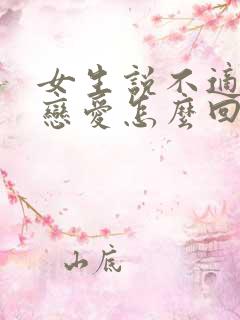 女生說不適
戀愛怎麼回
山底